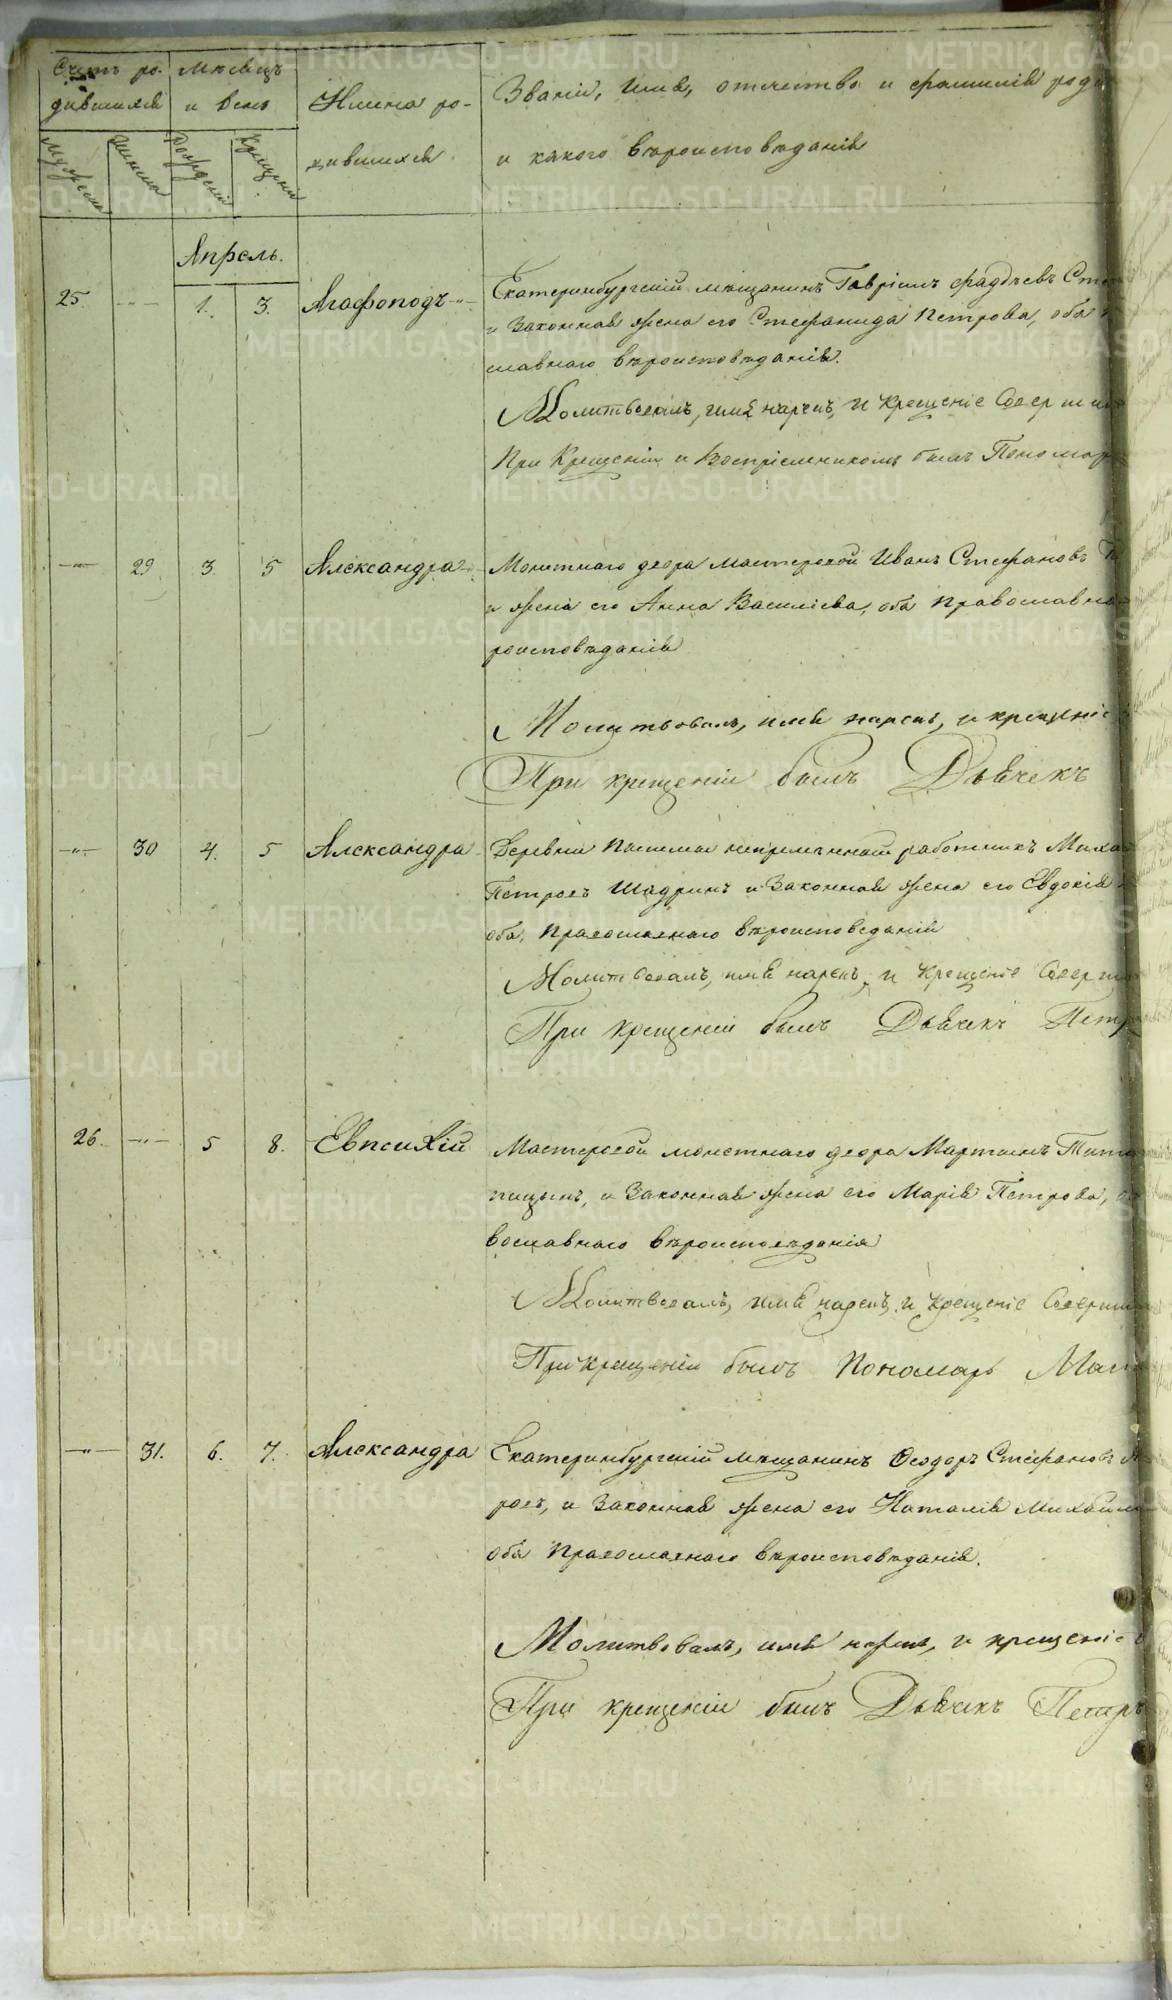 Счетъ ро-
дившихся
Мѣсяцъ
и день
Имена ро-
дившихся.
Званіе, имя, отчество и фамилія роди
и какого вѣроисповѣданія
Мужеска
Женска
Рожденія
Крещенія
Апрель.
25 1. 3. Агафоподъ
Екатеринбургскій мѣщанинъ Гавріилъ Фадѣевъ
и законная жена его Стефанида Петрова, оба
славнаго вѣроисповѣданія.
Молитвовалъ, имя нарекъ, и крещеніе Соверши
При Крещеніи и Воспріемникомъ былъ Пономар
29 3 5 Александра
Монетнаго двора мастеровой Иванъ Стефановъ
и жена его Анна Василіева, оба Православна
роисповѣданія
Молитвовалъ, имя нарекъ, и крещеніе
При крещеніи былъ Дьячекъ
30 4. 5 Александра
Деревни непремѣнный работникъ Миха
Петровъ Шадринъ и законная жена его Евдокія
оба, Православнаго вѣроисповеданія
Молитвовалъ, имя нарекъ, и крещеніе Соверши
При крещеніи былъ Дьячекъ Петр
26. 5 8. Евпсихій
Мастеровой монетнаго двора Мартинъ Тит
пицынъ, и законная жена его Марія Петрова,
вославнаго вѣроисповѣданія
Молитвовалъ, имя нарекъ, и крещеніе Соверши
При крещеніи былъ Пономарь
31. 6. 7. Александра
Екатеринбургскій мѣщанинъ Ѳеодоръ Стефановъ
ровъ, и законная жена его Наталія Михайло
оба Православнаго вѣроисповѣданія.
Молитвовалъ, имя нарекъ, и крещеніе
При крещеніи былъ Дьячекъ Петръ
METRIKI.GASO-URAL.RU